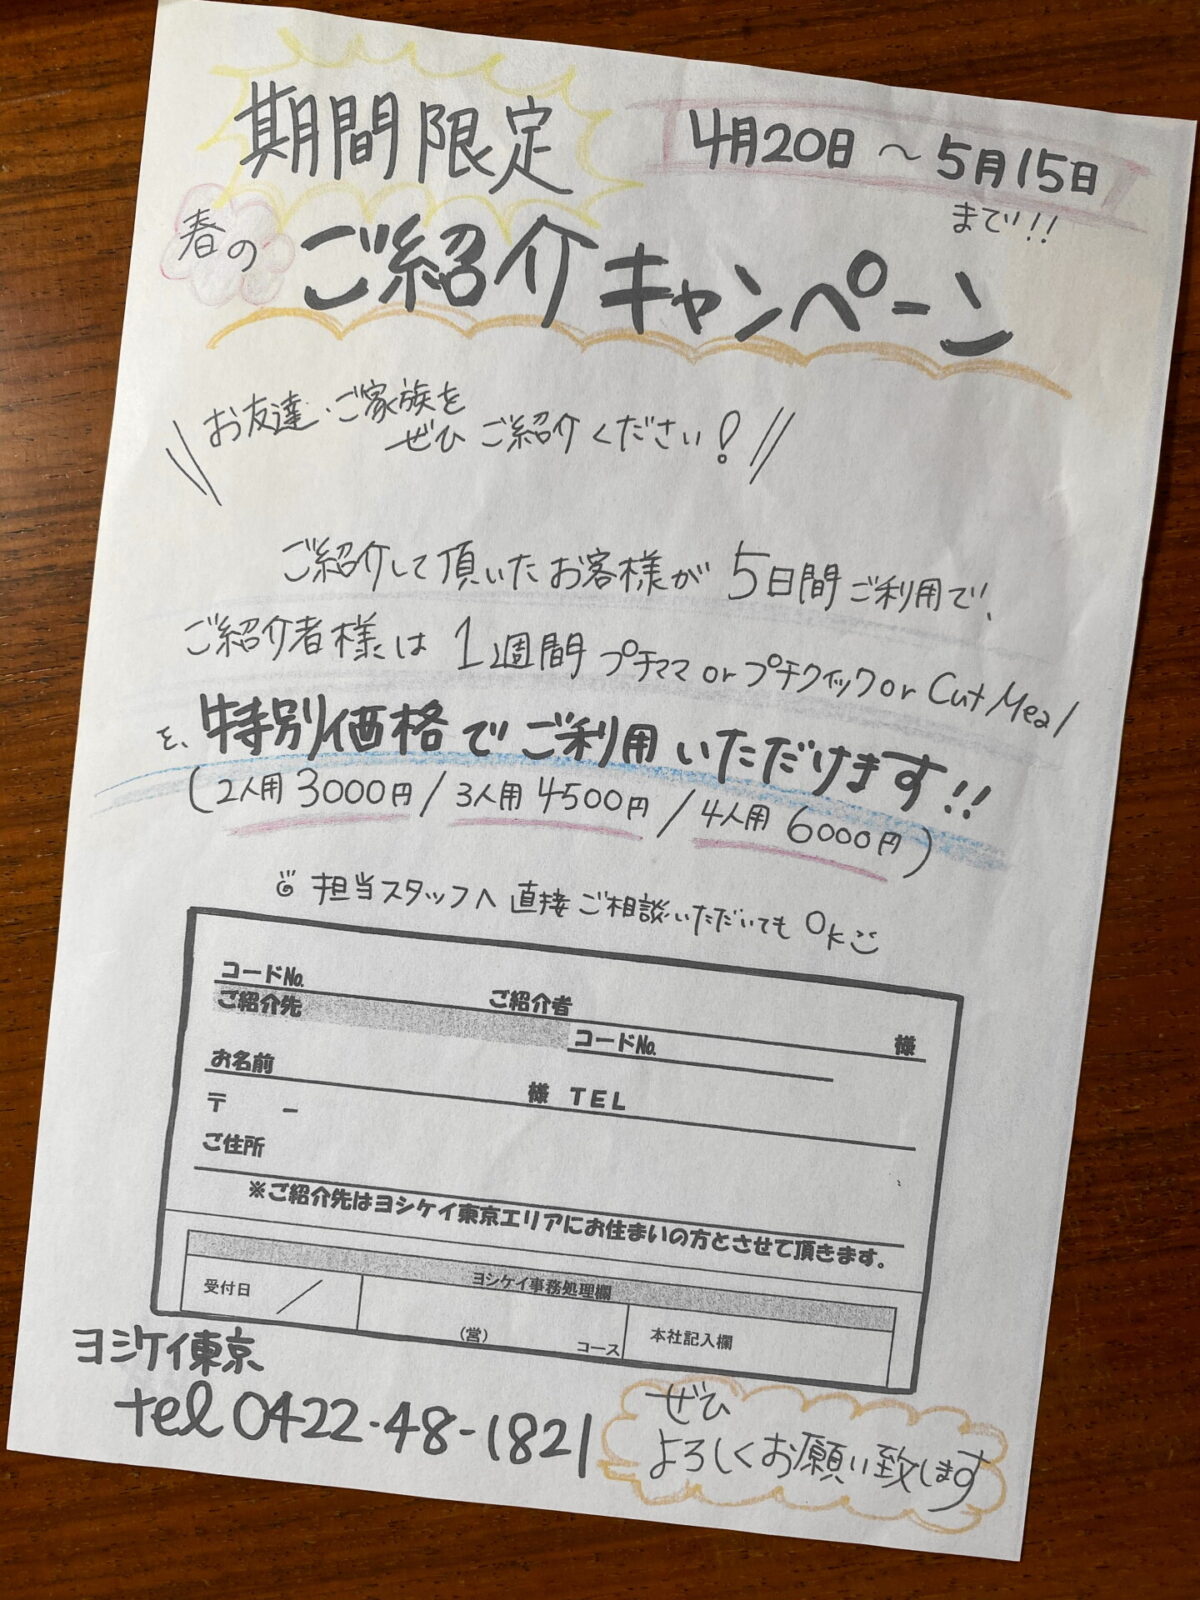 期間限定
4月20日〜5月15日
まで!!
春の
ご紹介キャンペーン
お友達・ご家族を
ぜひご紹介ください!
ご紹介して頂いたお客様が5日間ご利用で、
ご紹介者様は1週間プチママorプチクイックorCutMeal
を、特別価格でご利用いただけます!!
(2人用3000円/3人用4500円/4人用6000円)
担当スタッフへ直接ご相談いただいてもOK
コードNo.
ご紹介者
様
ご紹介先
コードNo.
お名前
様 TEL
〒 −
ご住所
※ご紹介先はヨシケイ東京エリアにお住まいの方とさせて頂きます。
ヨシケイ事務処理欄
受付日 /
(営) コース
本社記入欄
ヨシケイ東京
tel 0422-48-1821
ぜひ
よろしくお願い致します